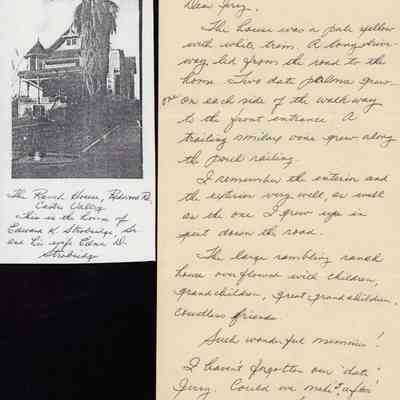 The Ranch House, Redwood Rd,
Castro Valley
This is the home of
Edward K. Strobridge, Sr.
and his wife Edna D.
Strobridge
Dear Jerry,
The house was a pale yellow
with white trim. A long drive-
way led from the road to the
home. Two date palms grew
on each side of the walk way
to the front entrance. A
trailing smilax vine grew along
the porch railing.
I remember the interior and
the exterior very well, as well
as the one I grew up in
just down the road.
The large rambling ranch
house overflowed with children,
grandchildren, great grandchildren,
countless friends.
Such wonderful memories!
I haven't forgotten our "date"
Jerry. Could we make it after